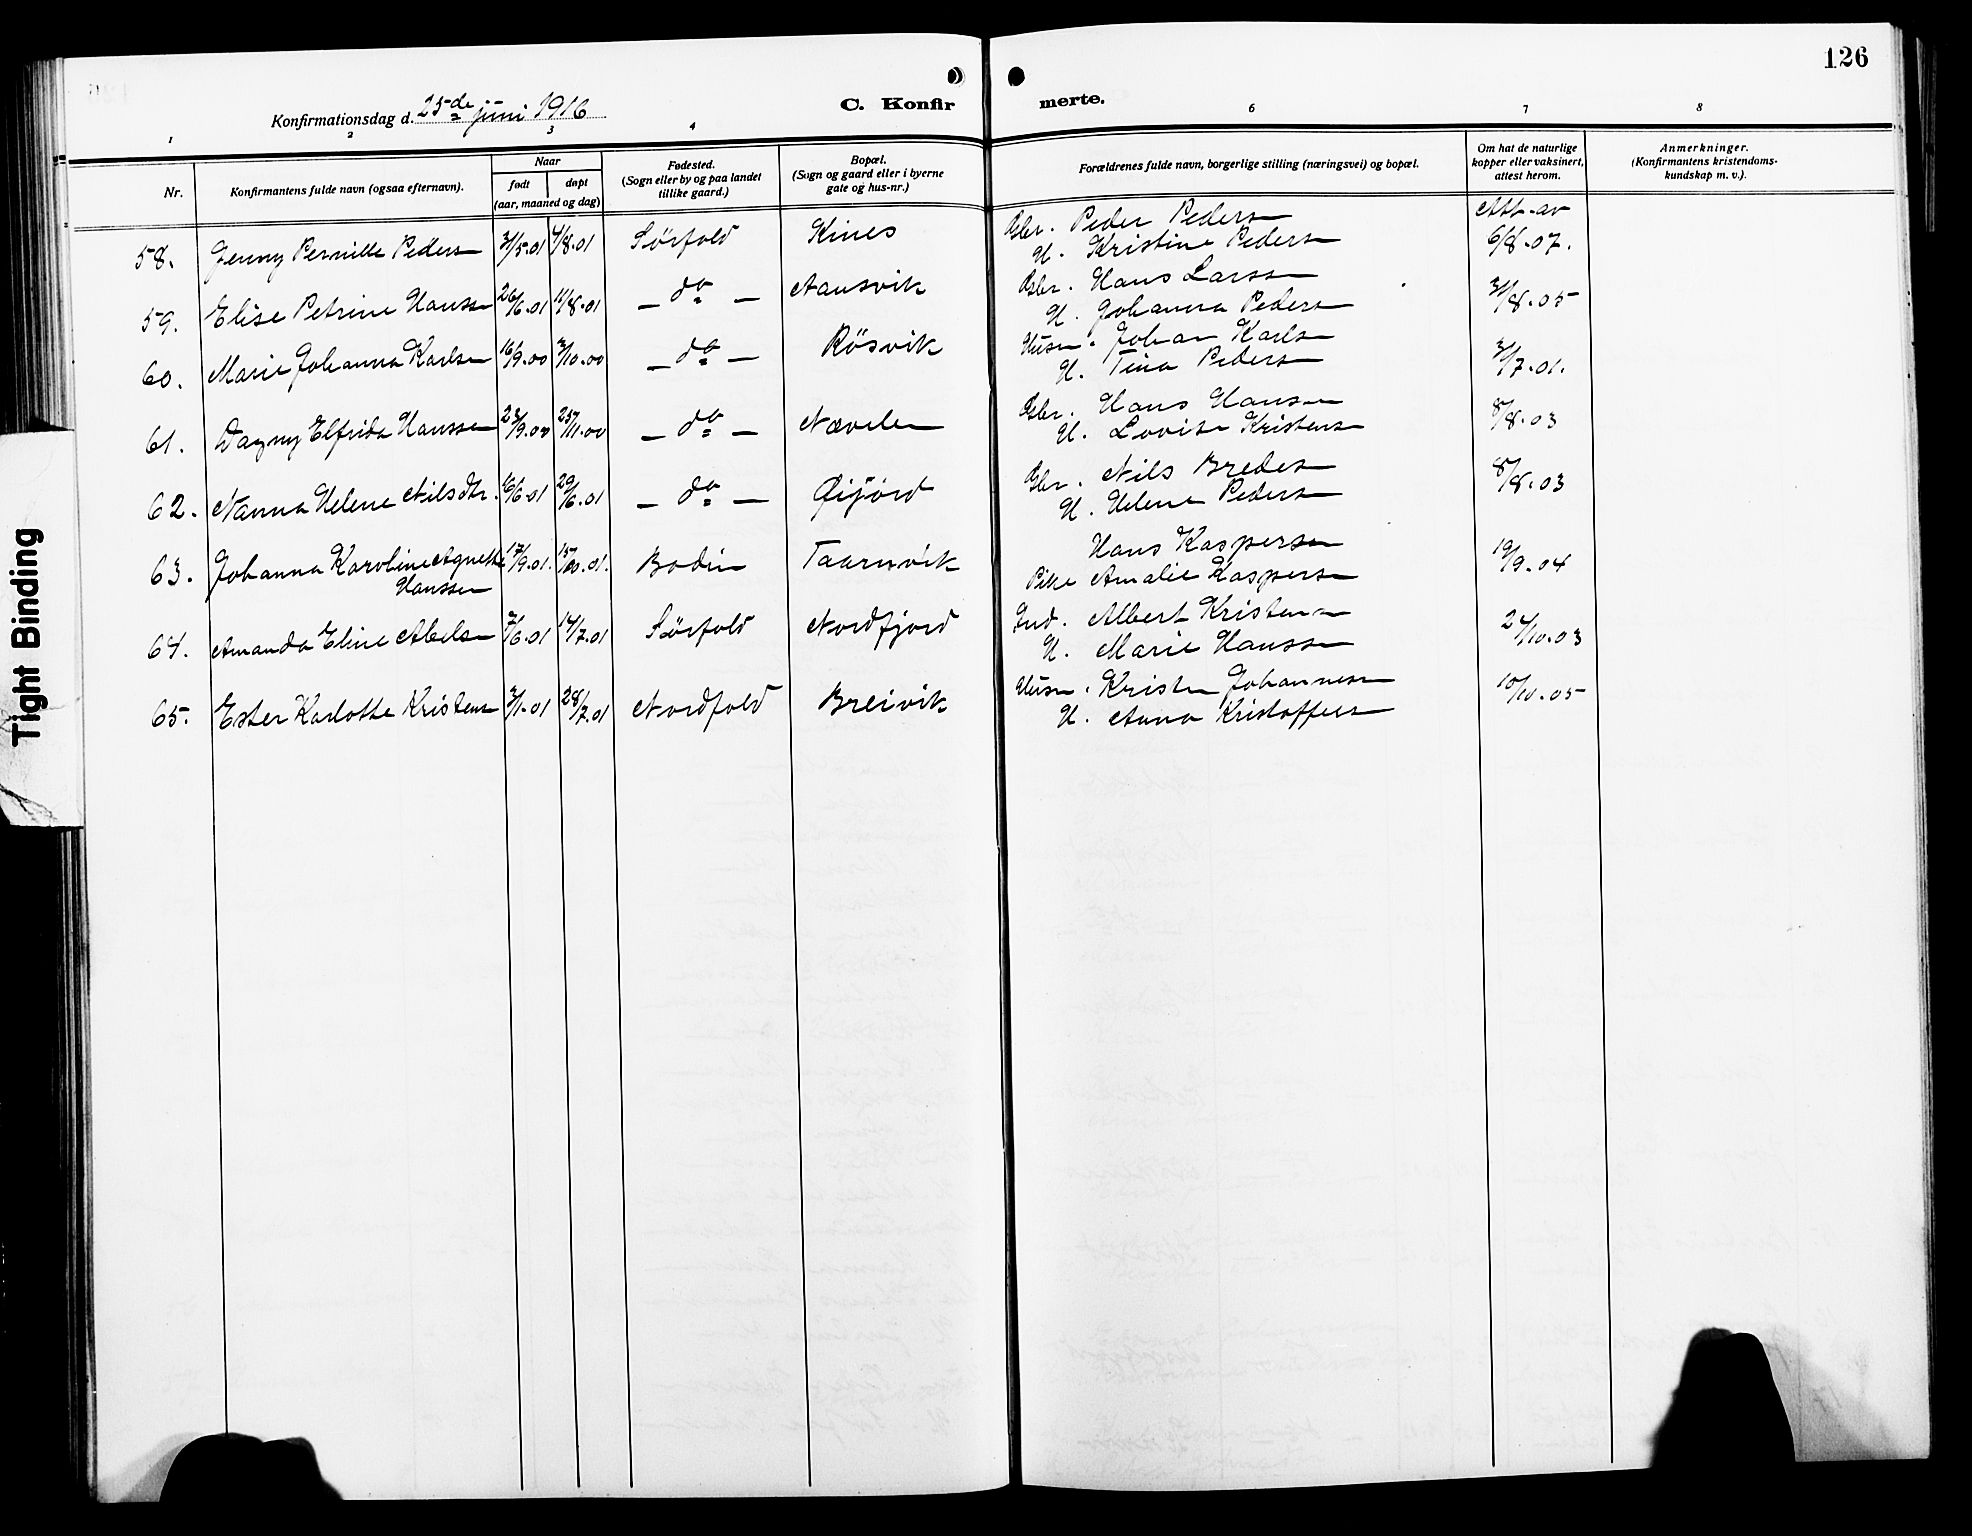 126
Konfirmationsdag d. 25de juni 1916
C. Konfir merte.
1 2 3 4 6 7 8
Nr.
Konfirmantens fulde navn (ogsaa efternavn).
Naar
født døpt
(aar, maaned og dag)
Fødested.
(Sogn eller by og paa landet
tillike gaard.)
Bopæl.
(Sogn og gaard eller i byerne
gate og hus-nr.)
Forældrenes fulde navn, borgerlige stilling (næringsvei) og bopæl.
Om hat de naturlige
kopper eller vaksinert,
attest herom.
Anmerkninger.
(Konfirmantens kristendoms-
kundskap m. v.).
58. Jenny Pernille Peders 4/8.01 Sørfold Kines Gbr. Peder Peders Att. av
H. Kristine Peders 6/8.07.
59. Elise Petrine Hanssen 26/6.01 11/8.01 — do — Aansvik Gbr. Hans Larssen
H. Johanna Peders 31/8.05
60. Marie Johanna Karlsen 16/9.00 — do — Røsvik Husm. Johan Karls
H. Tina Peders
61. Dagny Elfrida Hanssen 23/9.00 25/11.00 — do — Nævelen Gbr. Hans Hansen
H. Lovise Kristens 8/8.03
62. Nanna Helene Nilsdtr. 29/6.01 — do — Øifjord Gbr. Nils Bredes
H. Helene Peders 8/8.03
63. Johanna Karoline Agnethe 17/9.01. 15/10.01. Bodin Taarnvik Hans Kaspersen
Hanssen
Pike Amalie Kaspersen 19/9.04
64. Amanda Eline Abelsen 14/7.01 Sørfold Nordfjord Ind. Albert Kristensen
H. Marie Hanssen 24/10.03
65. Ester Karlotte Kristens 28/7.01 Nordfold Breivik Husm. Kristen Johannesen 10/10.05
H. Anna Kristoffers
Tight Binding